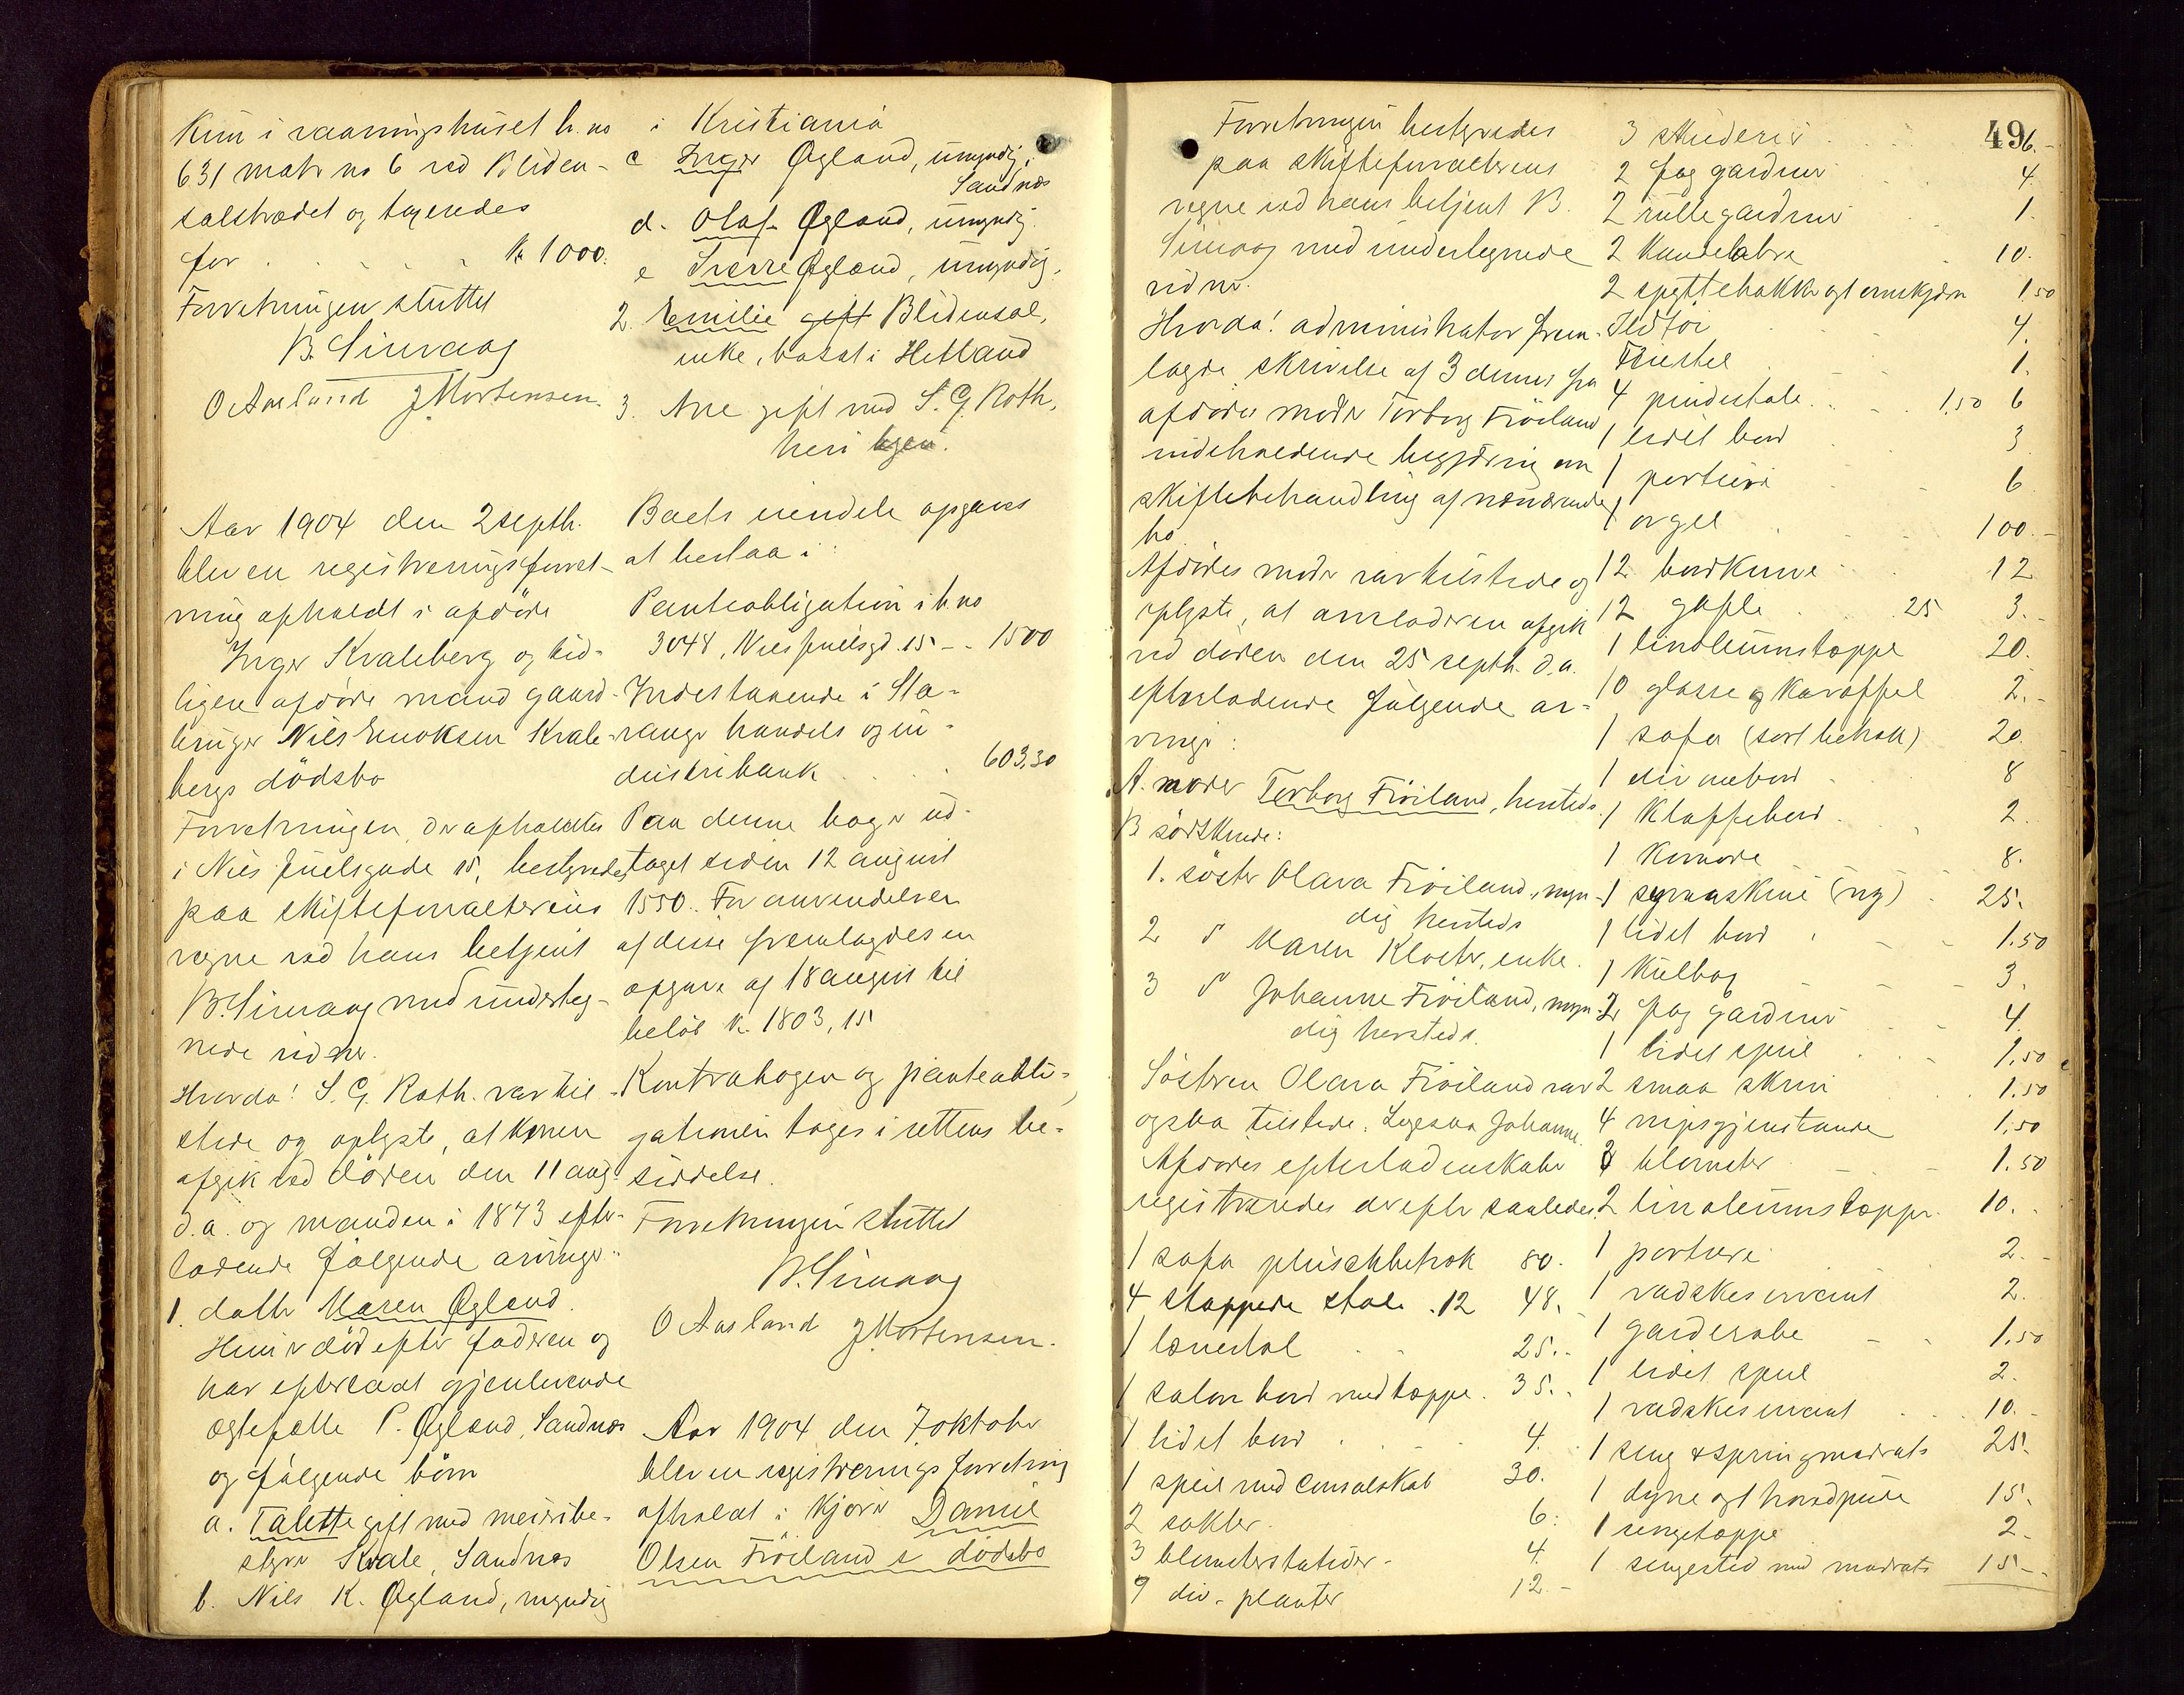 Kun i vaaningshuset b. no
631 matr no 6 ved Bliden-
salstrædet og toges
for . . . . . k 1000.
Forretningen sluttet
B. Simvaag
O Aasland J Mortensen.
Aar 1904 den 2 septb.
blev en registreringsforret-
ning afholdt i afdöde
Inger Kvaleberg og tid-
ligere afdöde mand gaard-
bruger Niels Enoksen Kvale-
bergs dödsbo
Forretningen, der afholdtes
i Niels Juelsgade 15, bestyredes
paa skifteforvalterens
vegne ved hans betjent
B. Simvaag med underteg-
nede vidner.
Hvorda! S. G. Roth. var til-
stede og oplyste, at konen
afgik ved döden den 11 aug.
d.a. og manden i 1873 efter-
ladende fölgende arvinger:
1. datter Maren Øgland.
Hun er död efter faderen og
har efterladt gjenlevende
ægtefælle P. Øgland, Sandnes
og fölgende börn
a. Talette gift med meieribe-
styrer Kvale, Sandnes
b. Nils K. Øgland, myndig
i Kristiania
c Inger Øgland, umyndig,
Sandnes
d. Olaf Øgland, umyndig
e Sverre Øgland, umyndig.
2. Emilie gift Blidensol,
enke, bosat i Hetland
3. Ane gift med S. G. Roth,
heri byen.
Boets eiendele opgaves
at bestaa i:
Panteobligation i b. no
3048, Niels Juelsgd. 15 - - 1500
Indestaaende i Sta-
vanger handels og in-
dustribank . . . . 603,30
Paa denne bog er ud-
taget siden 12 august
1550.. For anvendelsen
af disse fremlagdes en
opgave af 18 august til
belöb k. 1803,15
Kontrabogen og panteobli-
gationen toges i rettens be-
siddelse.
Forretningen sluttet
B. Simvaag
O Aasland J Mortensen.
Aar 1904 den 7 oktober
blev en registrerings forretning
afholdt i kjörer Daniel
Olsen Fröiland s dödsbo
Forretningen bestyredes
paa skifteforvalterens
vegne ved hans betjent B.
Simvaag med undertegnede
vidner.
Hvorda! administrator frem-
lagde skrivelse af 3 dennes fra
afdödes moder Torborg Fröiland
indeholdende begjæring om
skiftebehandling af nærværende
bo
Afdödes moder var tilstede og
oplyste, at arveladeren afgik
ved döden den 25 septb. d.a.
efterladende fölgende ar-
vinger:
A. moder Torborg Fröiland, hersteds.
B södskende:
1. söster Olava Fröiland, myn-
dig hersteds
2 d Maren Kloster, enke.
3 d Johanne Fröiland, myn-
dig hersteds.
Söstren Olava Fröiland var
ogsaa tilstede. Ligesaa Johanne.
Afdödes efterladenskaber
registreredes derefter saaledes.
1 sofa plüschbetræk 80.
4 stoppede stole . 12 48.
1 lænestol . . 25.-
1 salonbord med tæppe . 35.-
1 lidet bord . . . 4.
1 speil med consolskab 30.
2 sokler . 6.
3 blomsterstatider - 4.
9 div. planter 12.-
49
3 skilderier . . . 6.-
2 fag gardiner . . 4.
2 rullegardiner . 1.
2 kandelabre . 10.
2 spyttebakker og 1 ovnskjærm 1.50
Ildtöi . . . 4.
Triestol . . 1.
4 pindestole . . . 1,50 6
1 lidet bord . 3
1 portiere . - 6
1 orgel . . - 100.-
12 bordknive . . 12
12 gafler . . 25 3.-
1 linoleumstæppe 20.
10 glasse og karaffel 2.-
1 sofa (sort betræk) 20.
1 div anebord . 8
1 klaffebord . . 2.
1 komode - 8.
1 symaskine (ny) . 25.
1 lidet bord . - - 1.50
1 Kulbog - - - 3.
2 fag gardiner - - 4.
1 lidet speil . . - 1,50
2 smaa skrin . . 1.50
4 nipsgjenstande 1,50
8 blomster - - 1.50
2 linoleumstæpper. 10. .
1 portiere . . 2.-
1 vadskeservant 2.
1 garderobe - - 1,50
1 lidet speil 2.
1 vadskeservant . . 10.-
1 seng & springmadrats 25.
1 dyne og 1 hovedpute 15.
1 sengetæppe 2.-
1 sengested med madrats 15-.